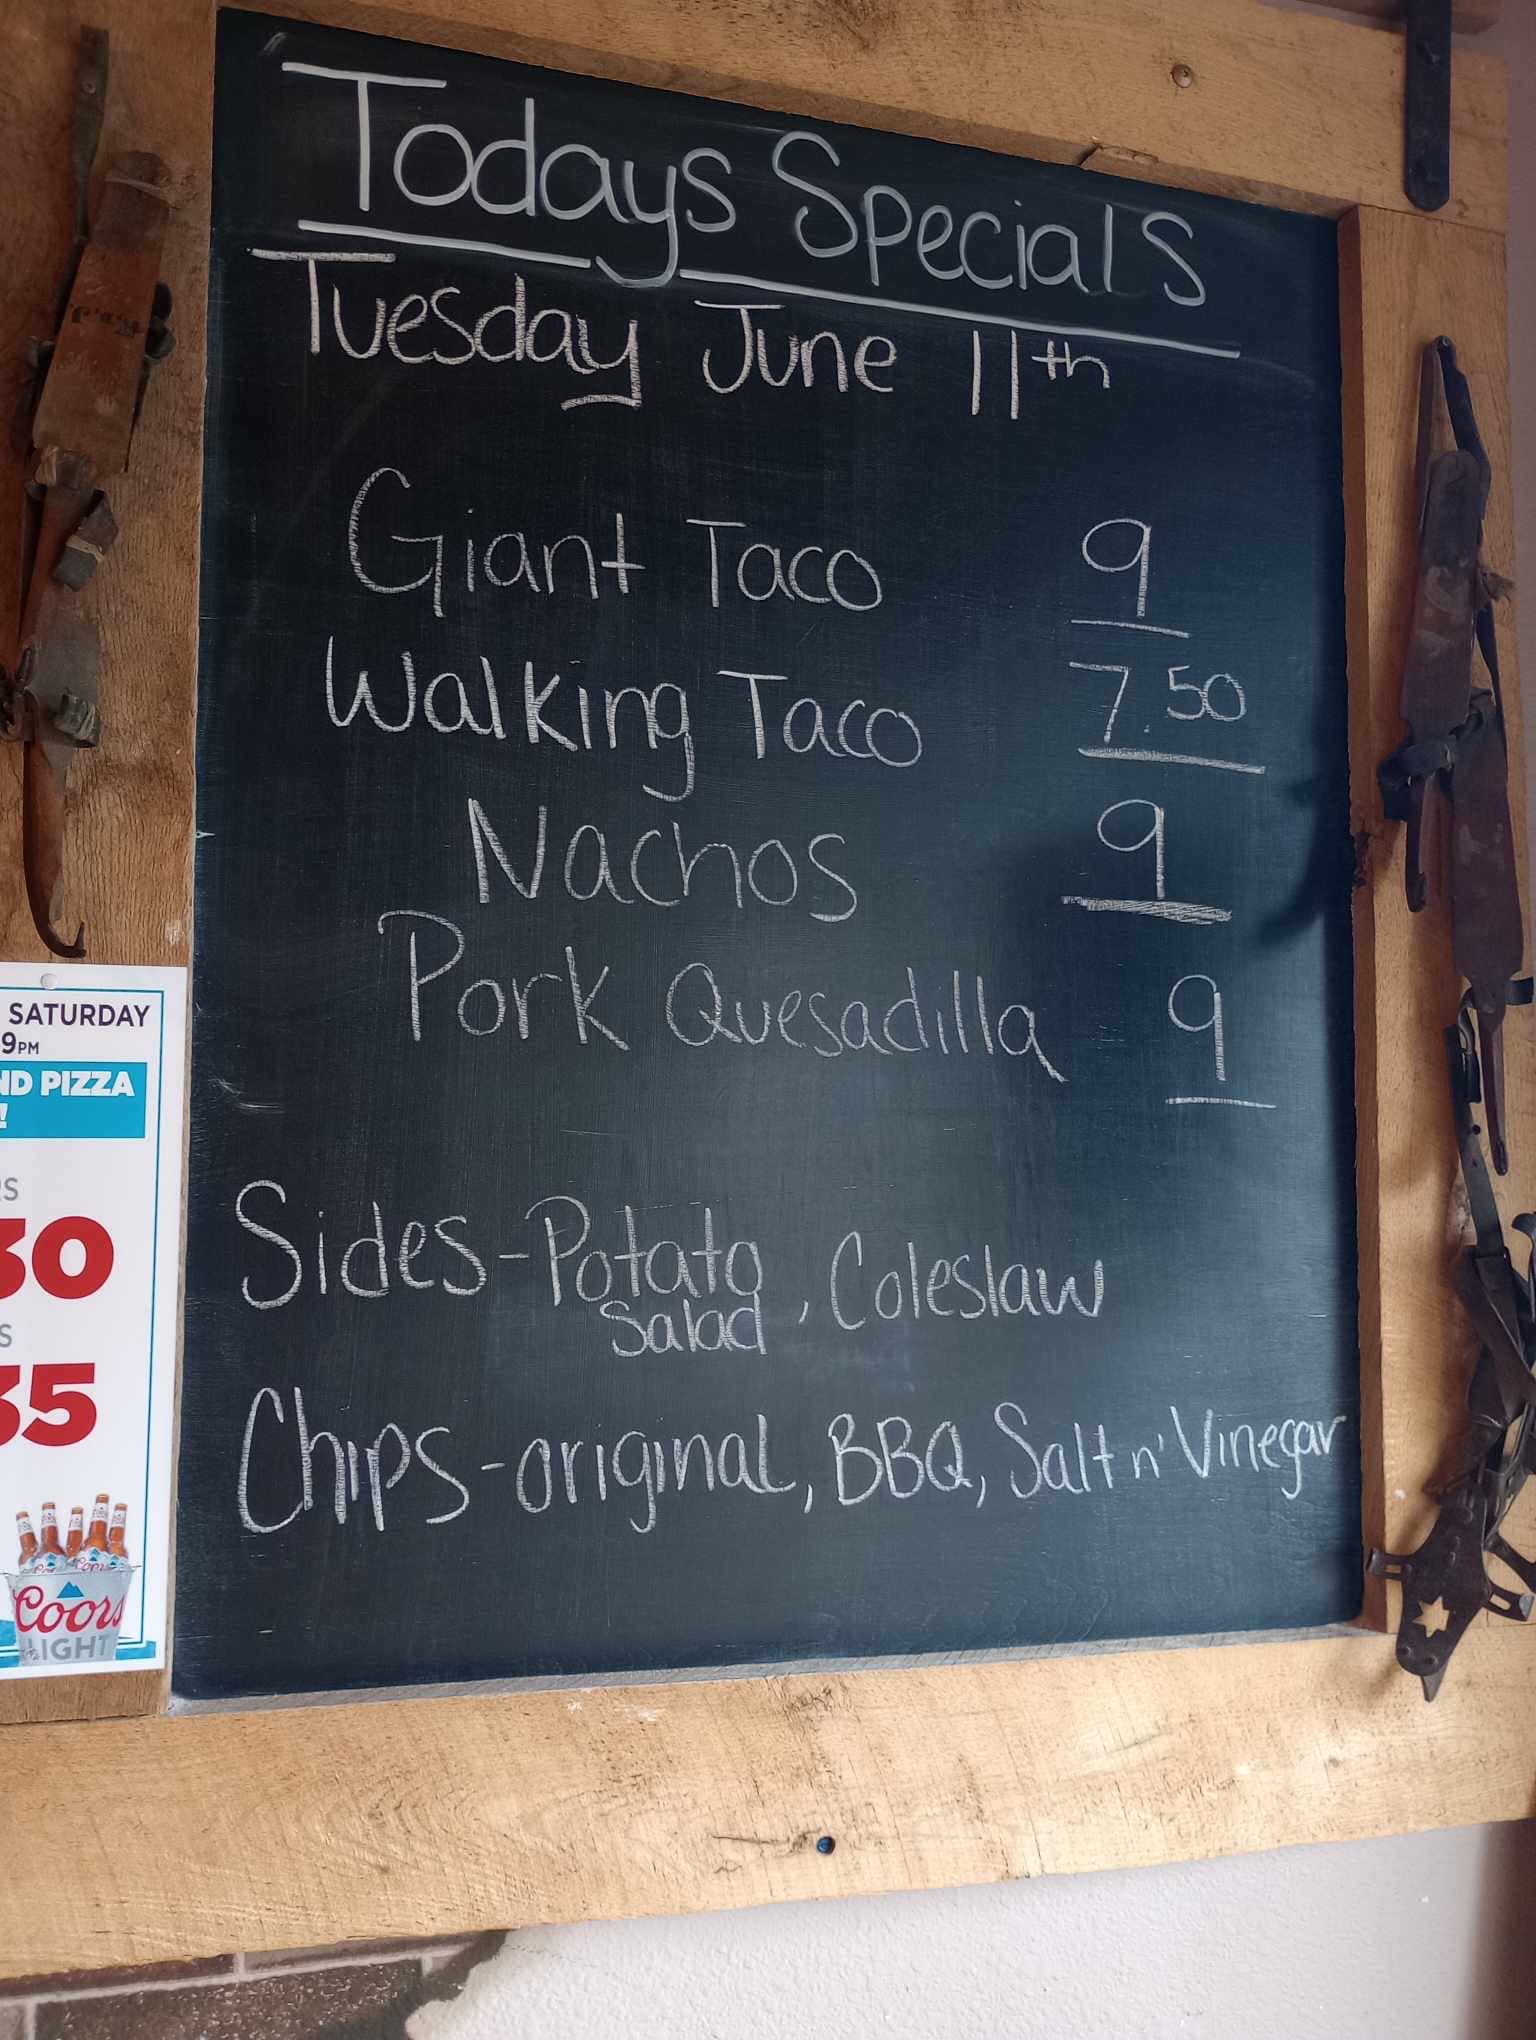 Todays Specials
Tuesday June 11th
Giant Taco 9
Walking Taco 7.50
Nachos 9
Pork Quesadilla 9
Sides-Potato Salad, Coleslaw
Chips-original, BBQ, Salt n' Vinegar
SATURDAY
9PM
ND PIZZA
!
RS
30
S
35
Coors
LIGHT